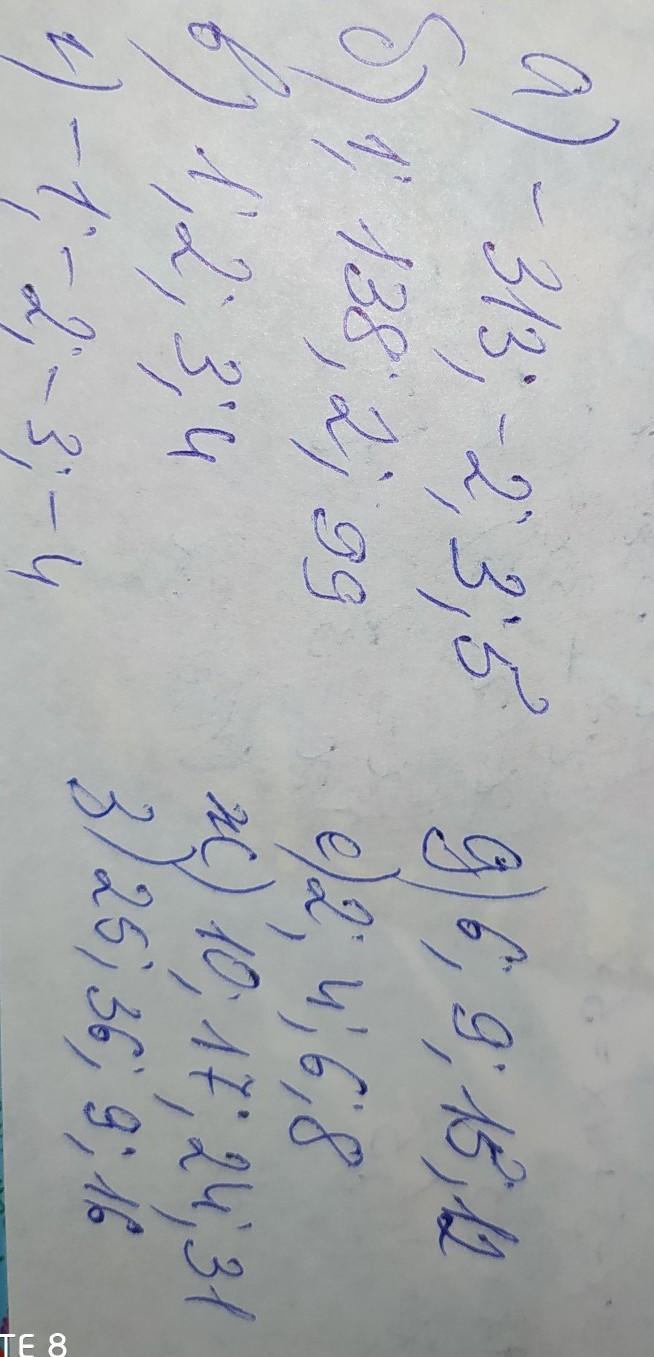 а) -313; -2; 3; 5
б) 1; 138; 2; 99
в) 1; 2; 3; 4
г) -1; -2; -3; -4
д) 6; 9; 15; 12
е) 2; 4; 6; 8
ж) 10; 17; 24; 31
з) 25; 36; 9; 16
TE 8